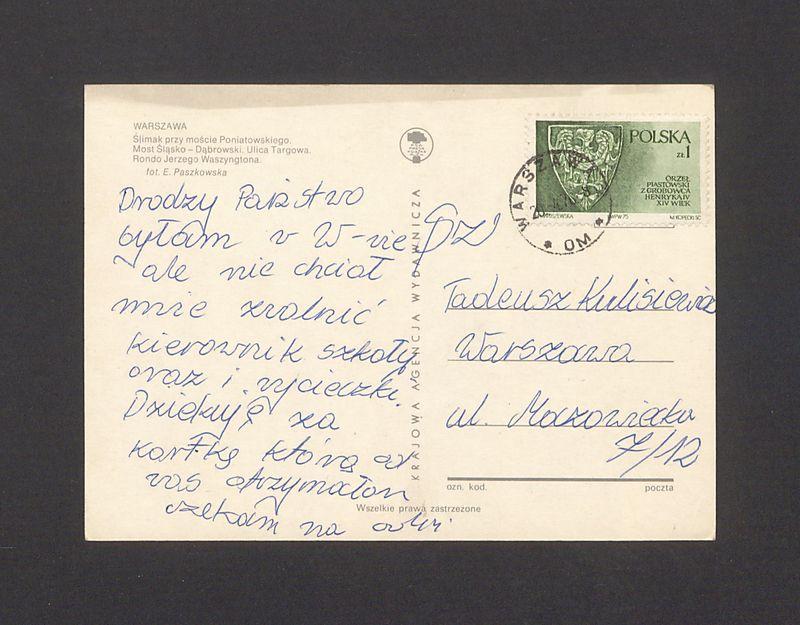 WARSZAWA
Ślimak przy moście Poniatowskiego.
Most Śląsko – Dąbrowski. Ulica Targowa.
Rondo Jerzego Waszyngtona.
fot. E. Paszkowska
Drodzy Państwo
byłam w W-wie
ale nie chciał
mnie zwolnić
kierownik szkoły
oraz i wycieczki.
Dziękuję za
kartkę którą od
was otrzymałam
czekam na
KRAJOWA AGENCJA WYDAWNICZA
POLSKA
zł 1
ORZEŁ
PIASTOWSKI
Z GROBOWCA
HENRYKA IV
XIV WIEK
PWPW 75
M. KOPECKI SC.
WARSZAWA
OM
Tadeusz Kulisiewicz
Warszawa
ul. Mazowiecka
7/12
ozn. kod.
poczta
Wszelkie prawa zastrzeżone